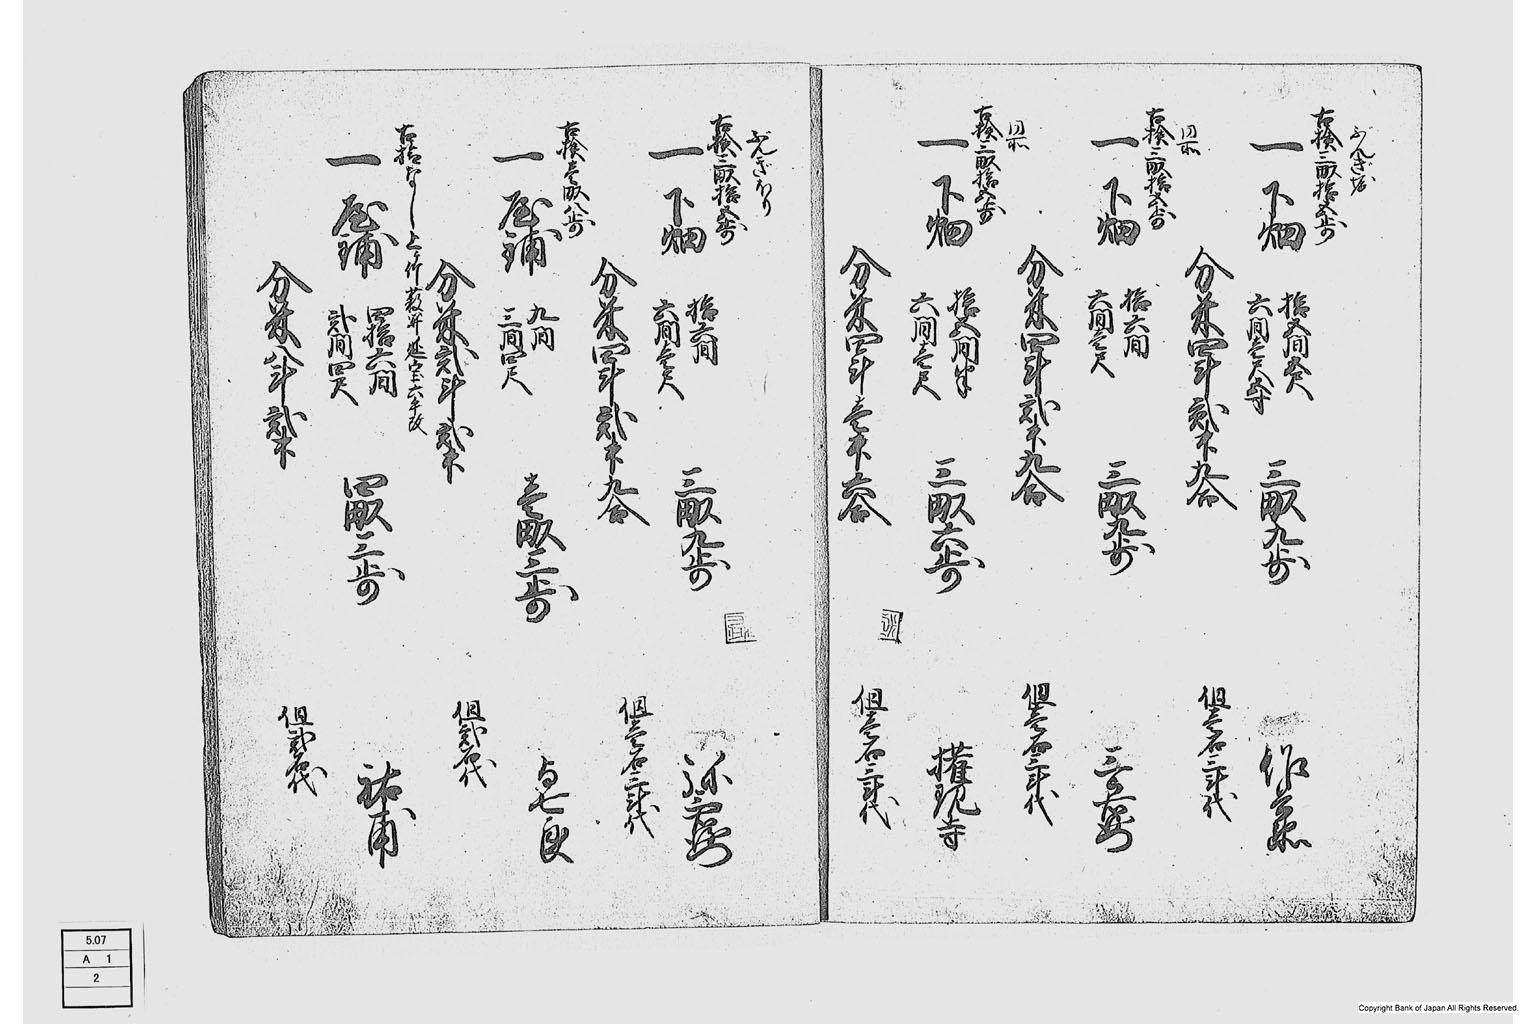 古検三畝拾五歩
一 下畑 拾五間五尺 三畝九歩
六間壱尺五寸
分米四斗弐升九合 但壱石三斗代
同所
古検三畝拾五歩
一 下畑 拾六間 三畝九歩 三右衛門
六間壱尺
分米四斗弐升九合 但壱石三斗代
同所
古検三畝拾五歩
一 下畑 拾五間半 三畝六歩 権現寺
六間壱尺
分米四斗壱升六合 但壱石三斗代
ぶんぎほり
古検三畝拾五歩
一 下畑 拾六間 三畝九歩 弥右衛門
六間壱尺
分米四斗弐升九合 但壱石三斗代
古検壱畝八歩
一 屋鋪 九間 壱畝三歩 与七郎
三間四尺
分米弐斗弐升 但弐石代
古検なし 延宝六年改
一 屋鋪 四拾六間 四畝三歩 祐甫
弐間四尺
分米八斗弐升 但弐石代
5.07
A 1
2
Copyright Bank of Japan All Rights Reserved.